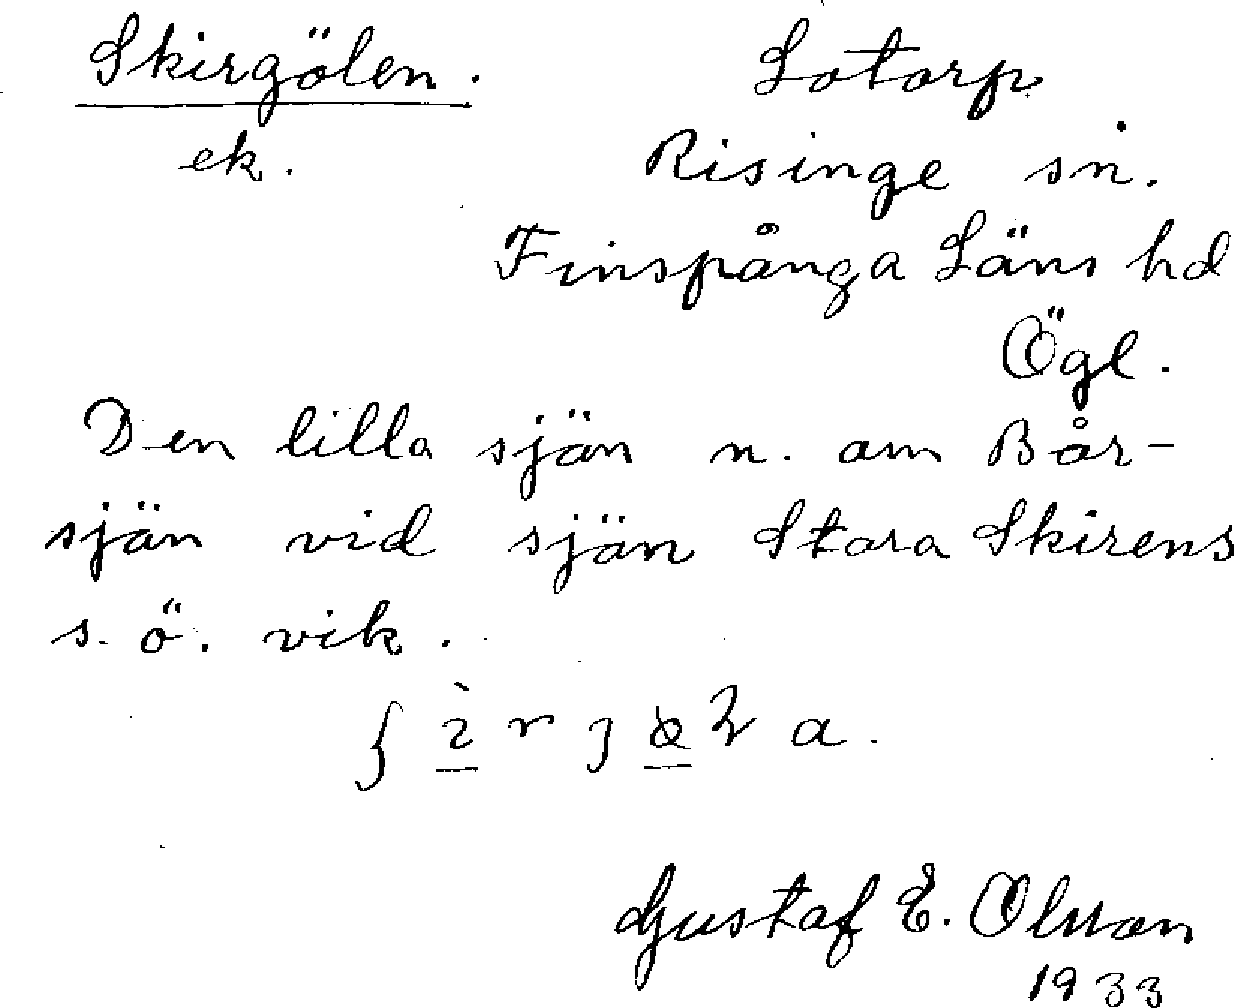 Skirgölen. Lotorp
ek. Risinge sn.
Finspånga Läns hd
Ögl.
Den lilla sjön n. om Bår-
sjön vid sjön Stora Skirens
s. ö. vik.
Gustaf E. Olsson
1933